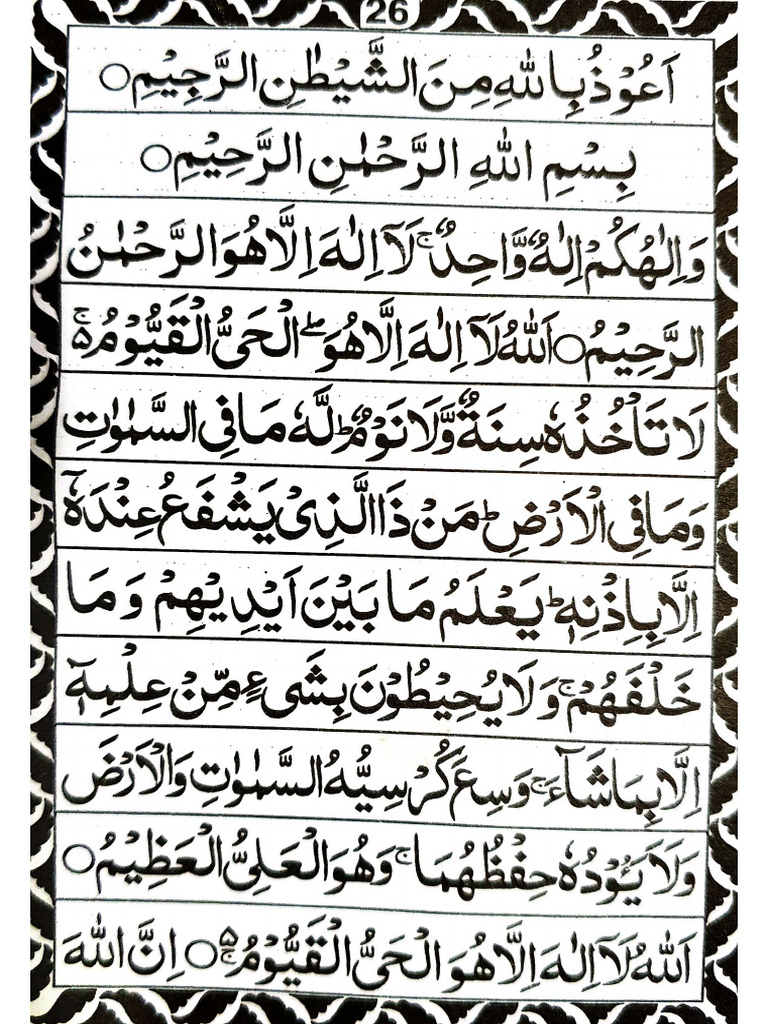 26
اَعُوْذُ بِاللّٰهِ مِنَ الشَّيْطٰنِ الرَّجِيْمِ○
بِسْمِ اللّٰهِ الرَّحْمٰنِ الرَّحِيْمِ○
وَاِلٰهُكُمْ اِلٰهٌ وَّاحِدٌ ۚ لَآ اِلٰهَ اِلَّا هُوَ الرَّحْمٰنُ
الرَّحِيْمُ○ اَللّٰهُ لَآ اِلٰهَ اِلَّا هُوَ ۖ اَلْحَىُّ الْقَيُّوْمُ ۚ۵
لَا تَاْخُذُهٗ سِنَةٌ وَّلَا نَوْمٌ ؕ لَهٗ مَا فِى السَّمٰوٰتِ
وَمَا فِى الْاَرْضِ ؕ مَنْ ذَا الَّذِىْ يَشْفَعُ عِنْدَهٗٓ
اِلَّا بِاِذْنِهٖ ؕ يَعْلَمُ مَا بَيْنَ اَيْدِيْهِمْ وَمَا
خَلْفَهُمْ ۚ وَلَا يُحِيْطُوْنَ بِشَىْءٍ مِّنْ عِلْمِهٖٓ
اِلَّا بِمَا شَآءَ ۚ وَسِعَ كُرْسِيُّهُ السَّمٰوٰتِ وَالْاَرْضَ
وَلَا يَـُٔوْدُهٗ حِفْظُهُمَا ۚ وَهُوَ الْعَلِىُّ الْعَظِيْمُ○
اَللّٰهُ لَآ اِلٰهَ اِلَّا هُوَ الْحَىُّ الْقَيُّوْمُ ۚ۵○ اِنَّ اللّٰهَ